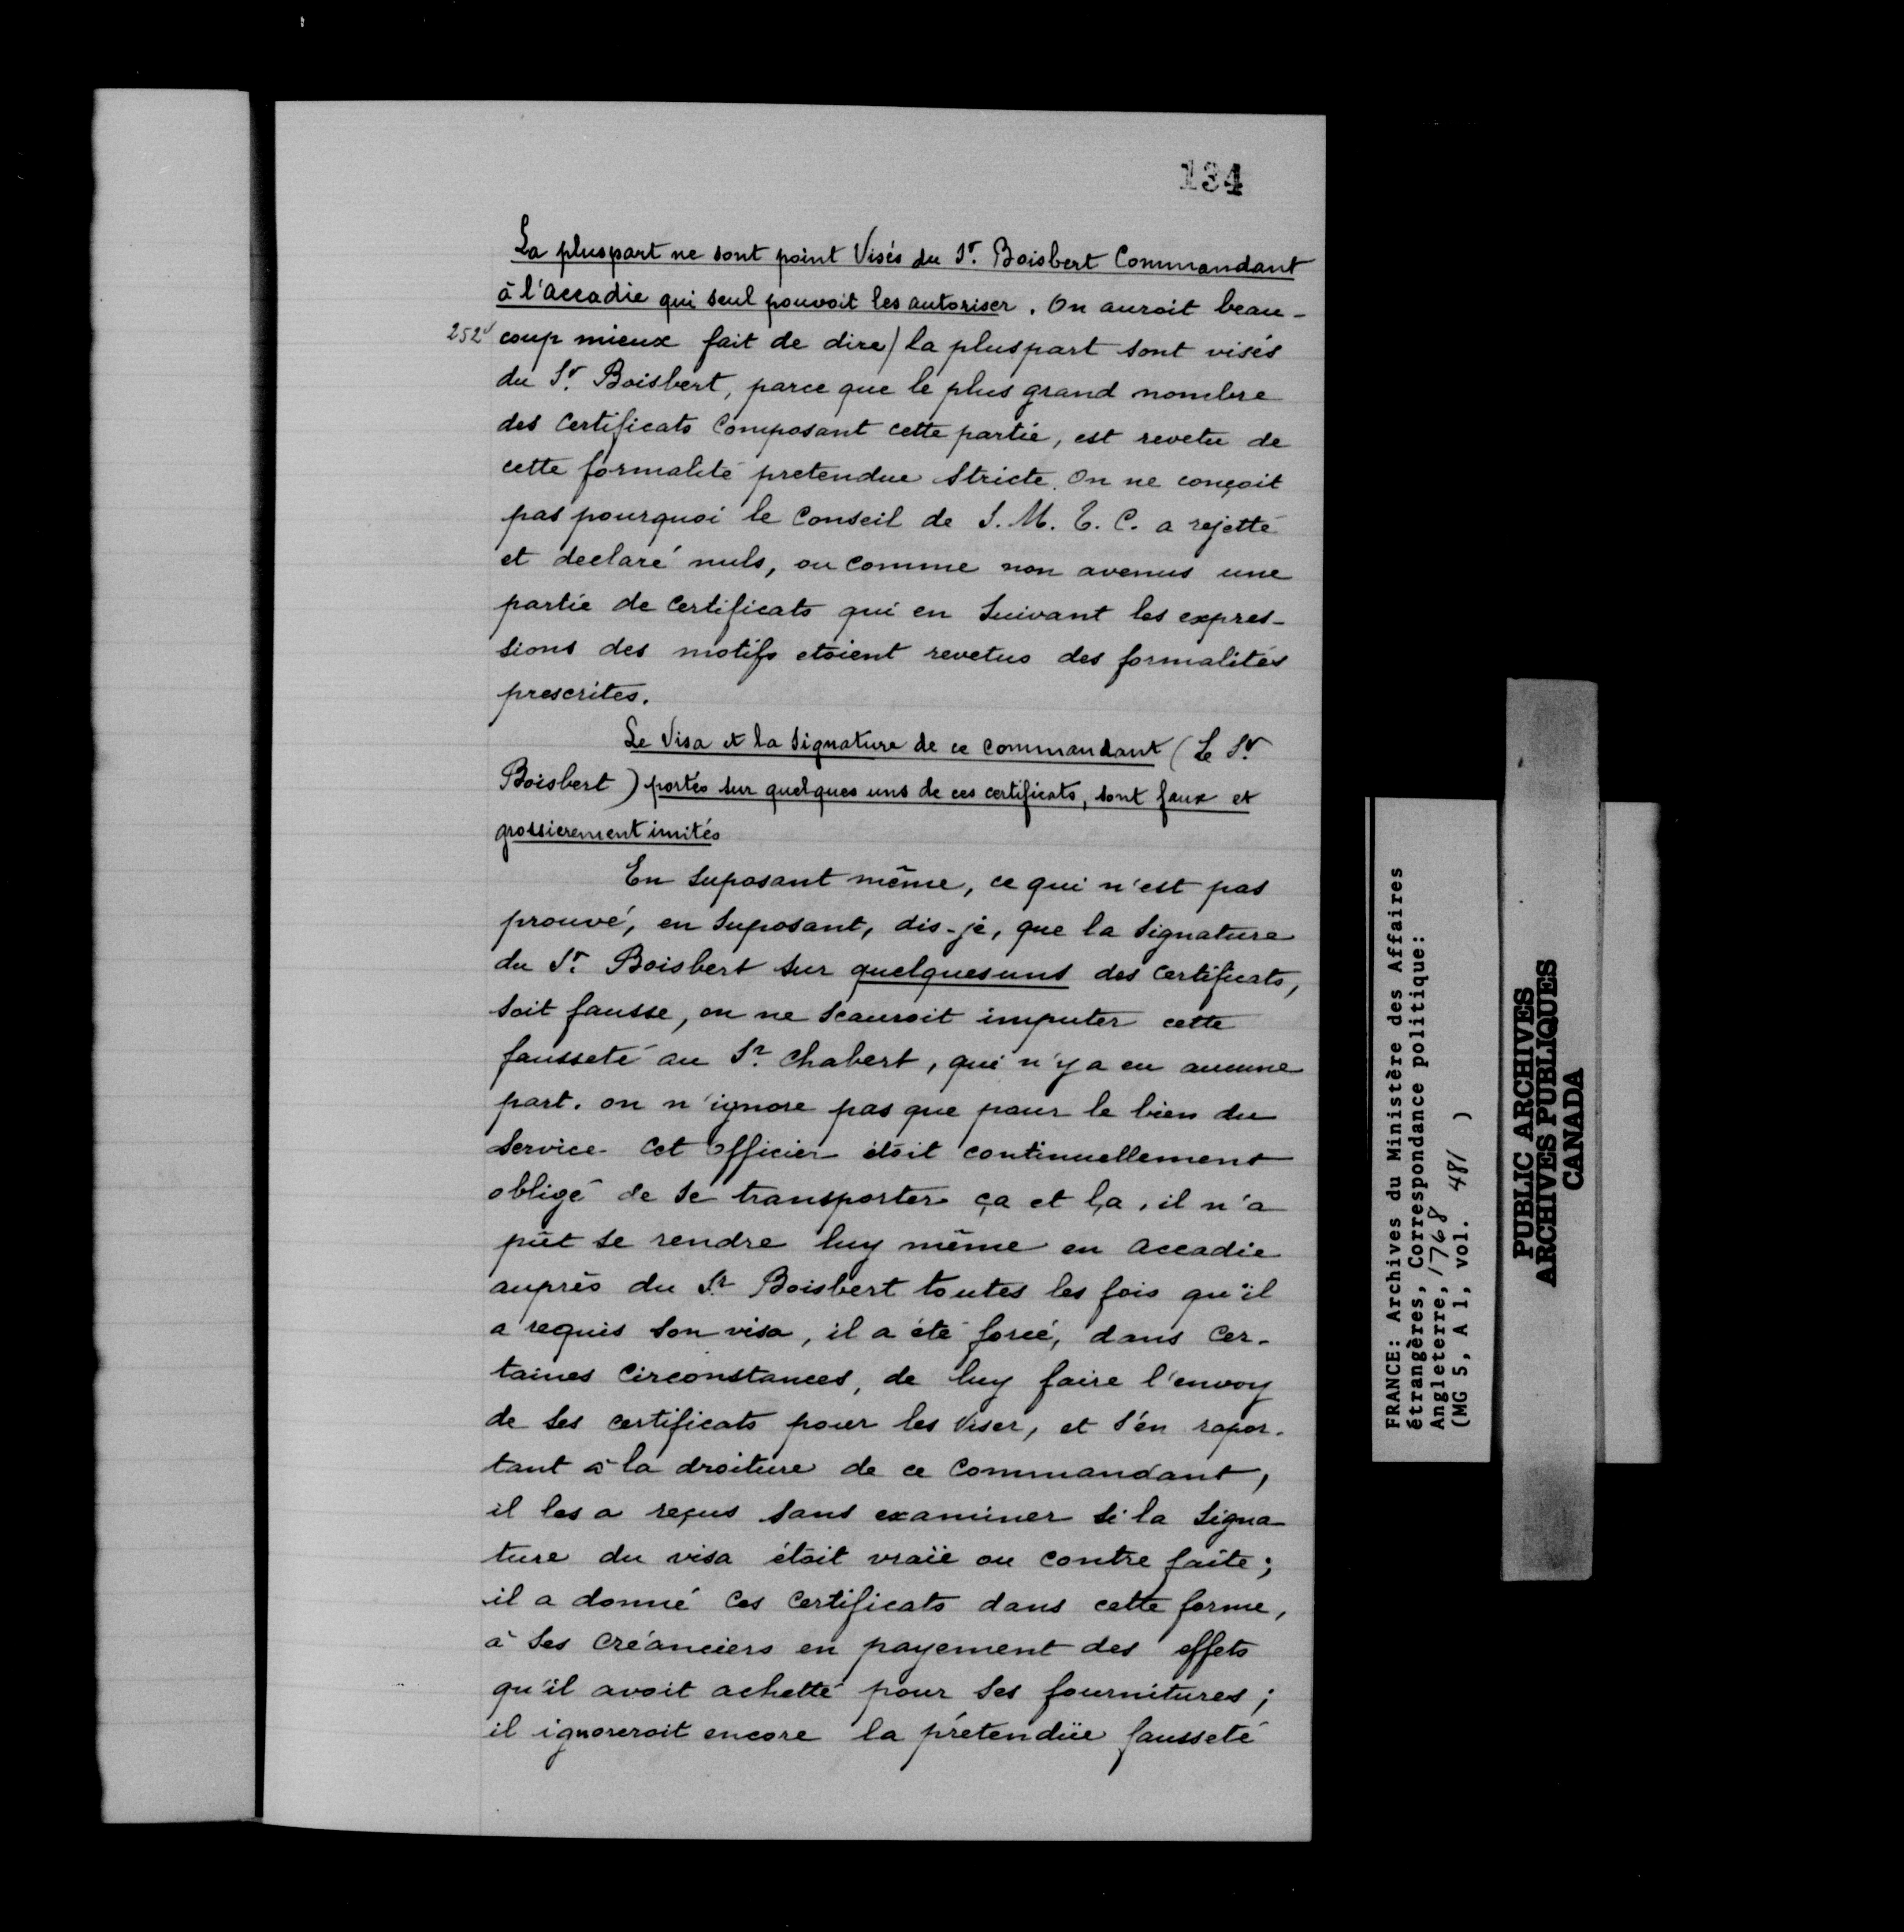 134
La pluspart ne sont point Visés du Sr. Boisbert Commandant
à l'accadie qui seul pouvoit les autoriser. On auroit beau-
252v coup mieux fait de dire/ la pluspart sont visés
du Sr. Boisbert, parce que le plus grand nombre
des Certificats Composant cette partie, est revetu de
cette formalité pretendue Stricte. On ne conçoit
pas pourquoi le Conseil de S. M. T. C. a rejetté
et declaré nuls, ou comme non avenus une
partie de Certificats qui en Suivant les expres-
sions des motifs etoient revetus des formalités
prescrites.
Le Visa et la Signature de ce Commandant (Le Sr.
Boisbert) portés sur quelques uns de ces certificats, sont faux et
grossierement imités
En Suposant même, ce qui n'est pas
prouvé, en Suposant, dis-je, que la Signature
du Sr. Boisbert sur quelquesuns des Certificats,
soit fausse, on ne Scauroit imputer cette
fausseté au Sr. Chabert, qui n'y a eu aucune
part. on n'ignore pas que pour le bien du
Service Cet Officier étoit continuellement
obligé de se transporter ça et la, il n'a
pût se rendre luy même en accadie
auprès du Sr. Boisbert toutes les fois qu'il
a requis son visa, il a été forcé, dans Cer-
taines Circonstances, de luy faire l'envoy
de ses certificats pour les Viser, et s'en rapor-
tant à la droiture de ce Commandant,
il les a reçus sans examiner si la Signa-
ture du visa étoit vraïe ou contre faite;
il a donné Ces Certificats dans cette forme,
à Ses Créanciers en payement des effets
qu'il avoit achetté pour Ses fournitures;
il ignoreroit encore la prétendüe fausseté
FRANCE: Archives du Ministère des Affaires
étrangères, Correspondance politique:
Angleterre, 1768
(MG 5, A 1, vol. 481 )
PUBLIC ARCHIVES
ARCHIVES PUBLIQUES
CANADA